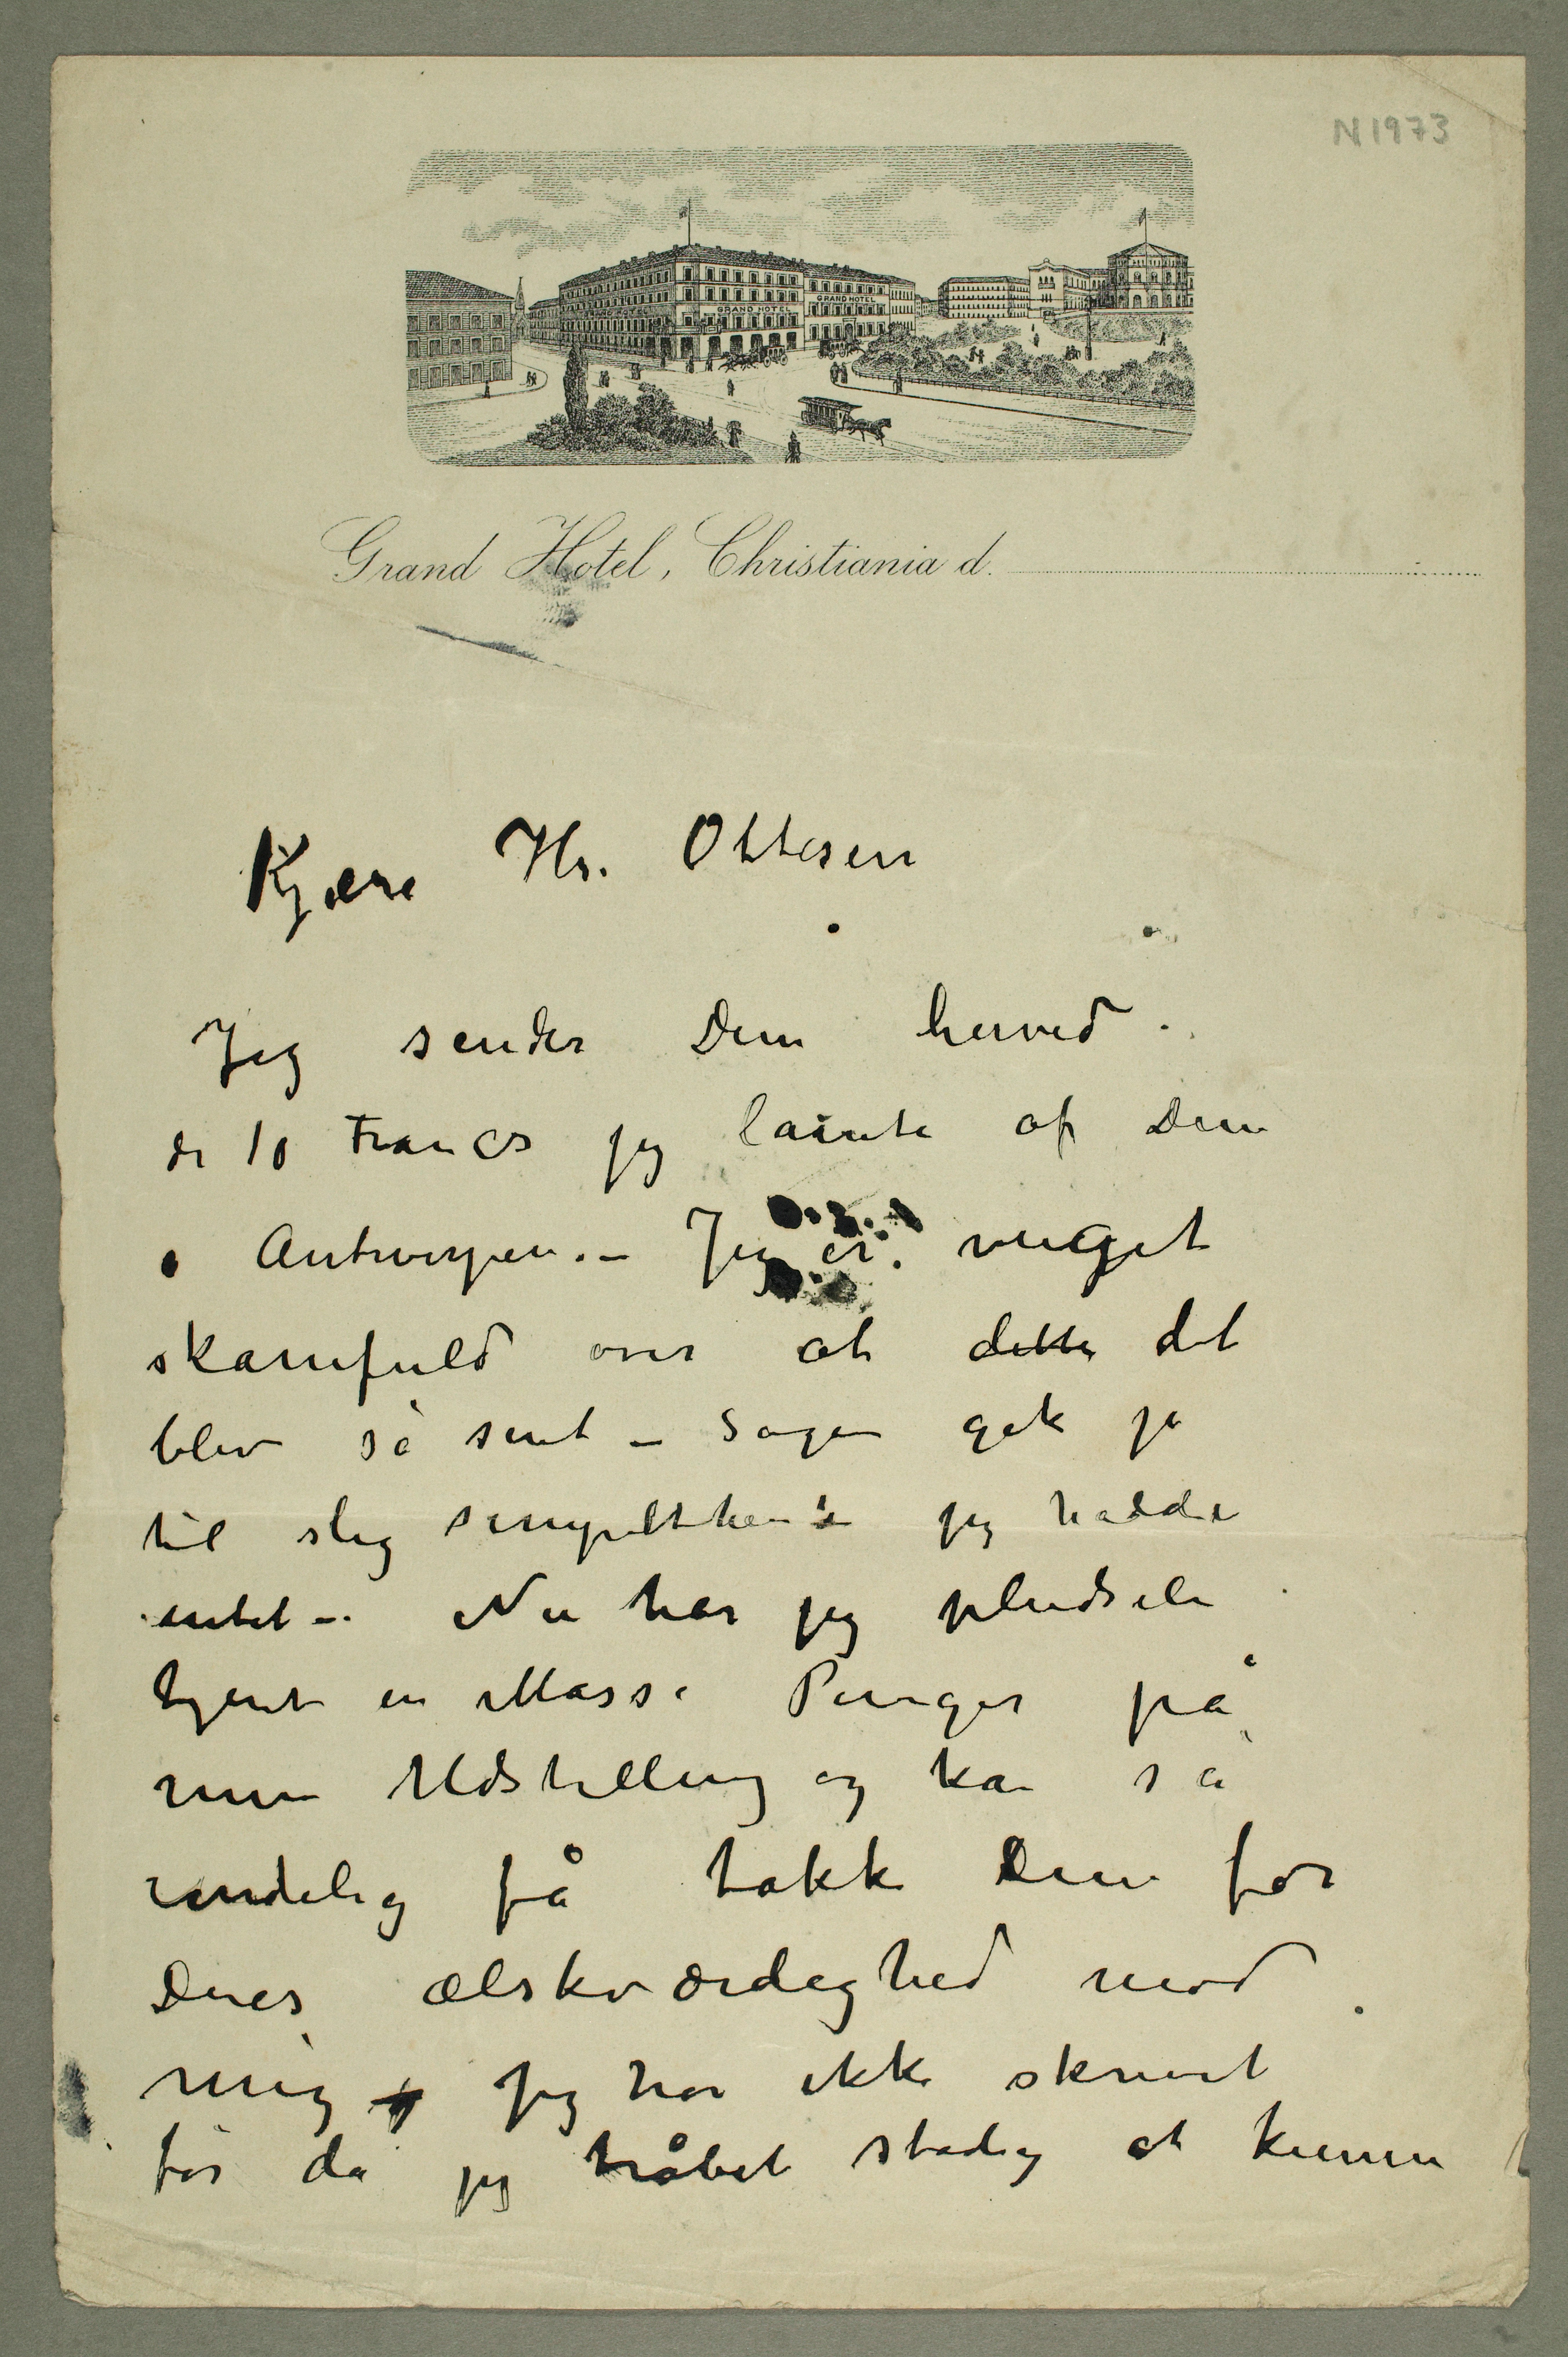 N 1973
GRAND HOTEL
GRAND HOTEL
GRAND HOTEL
Grand Hotel, Christiania d.
Kjære Hr. Ottesen
Jeg sender Dem herved
de 10 Francs jeg lånte af Dem
i Antwerpen. – Jeg er meget
skamfuld over at dette det
blev så sent – Sagen gik jo
til slig simpelthen – jeg hadde
intet –. Nu har jeg pludseli
tjent en Masse Penger på
min Udstilling og kan så
endelig få takke Dem for
Deres ælskværdighed mod
mig Jeg har ikke skrevet
før da jeg håbet stadig at kunne